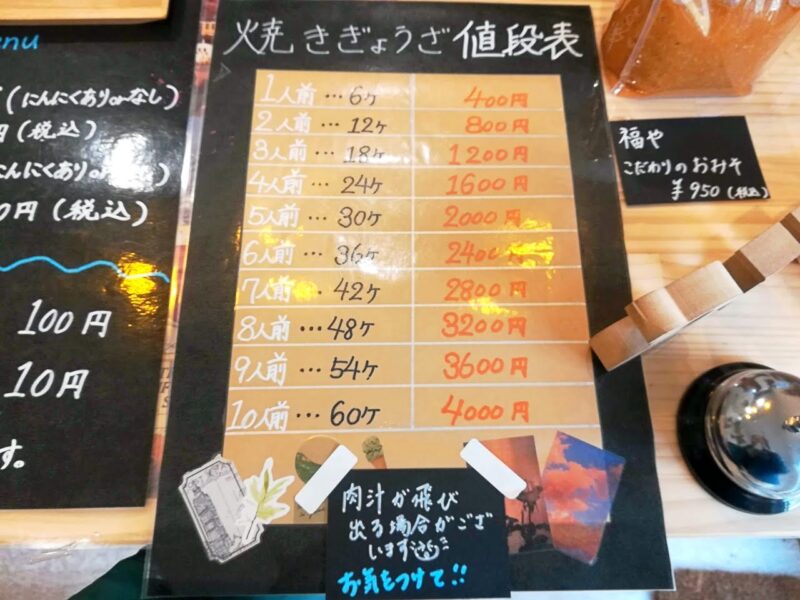 enu
(にんにくありorなし)
円(税込)
にくありorなし)
0円(税込)
100円
10円
す。
焼きぎょうざ 値段表
1人前…6ケ 400円
2人前…12ケ 800円
3人前…18ケ 1200円
4人前…24ケ 1600円
5人前…30ケ 2000円
6人前…36ケ 2400円
7人前…42ケ 2800円
8人前…48ケ 3200円
9人前…54ケ 3600円
10人前…60ケ 4000円
肉汁が飛び
出る場合がござ
います
お気をつけて!!
福や
こだわりのおみそ
¥950(税込)